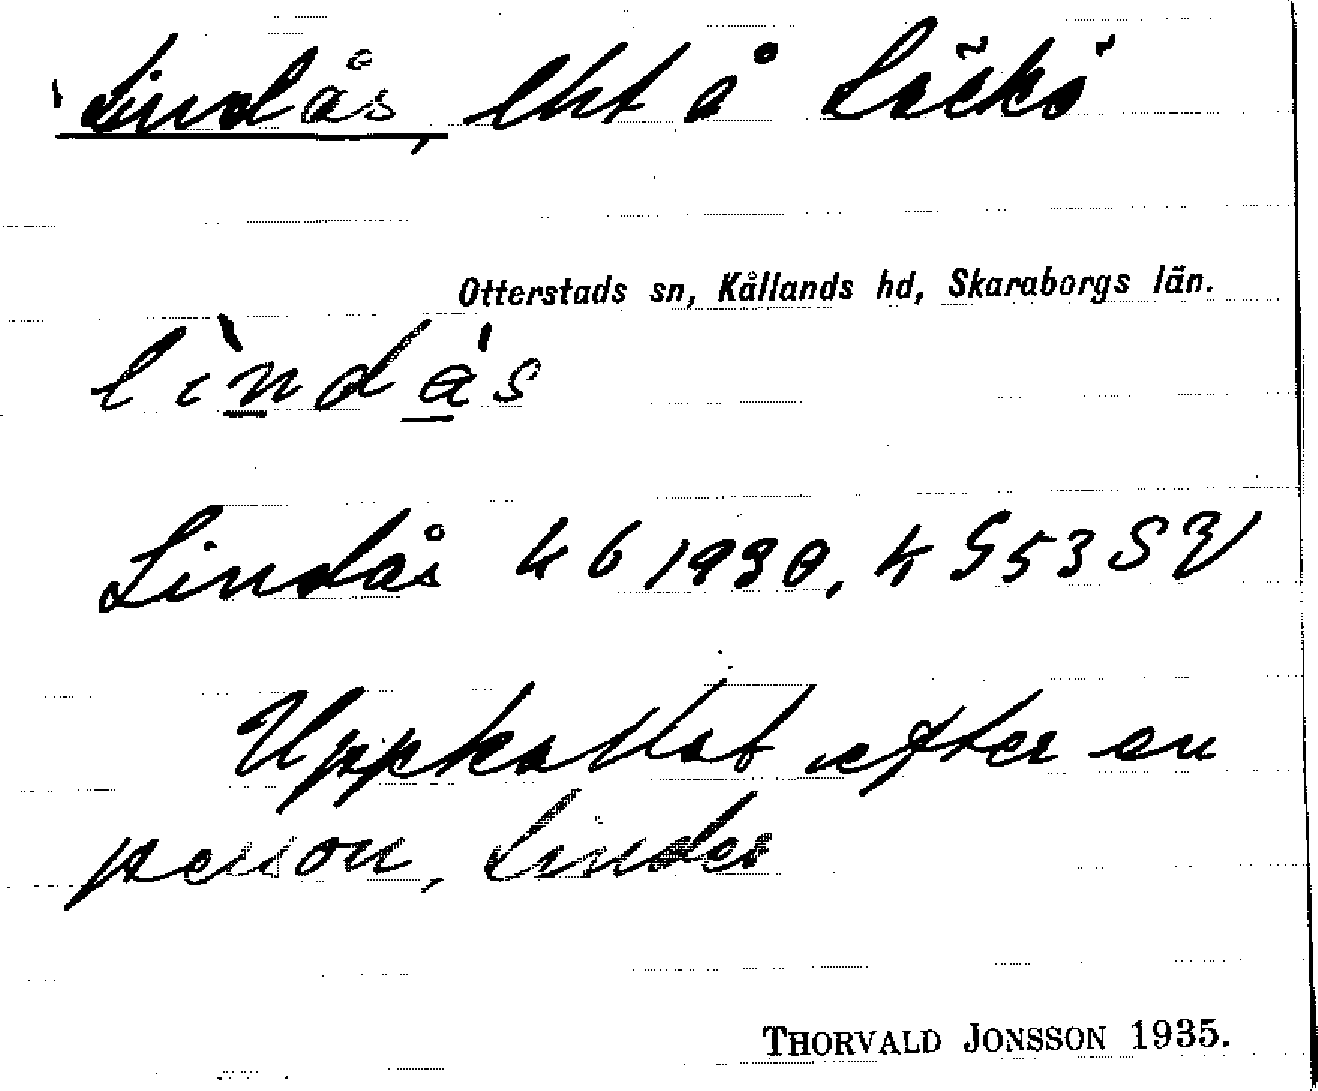 Lindås, lht å Läckö
Otterstads sn, Kållands hd, Skaraborgs län.
lìndás
Lindås kb 1930, k G53SV
Uppkallat efter en
person, Linder
THORVALD JONSSON 1935.